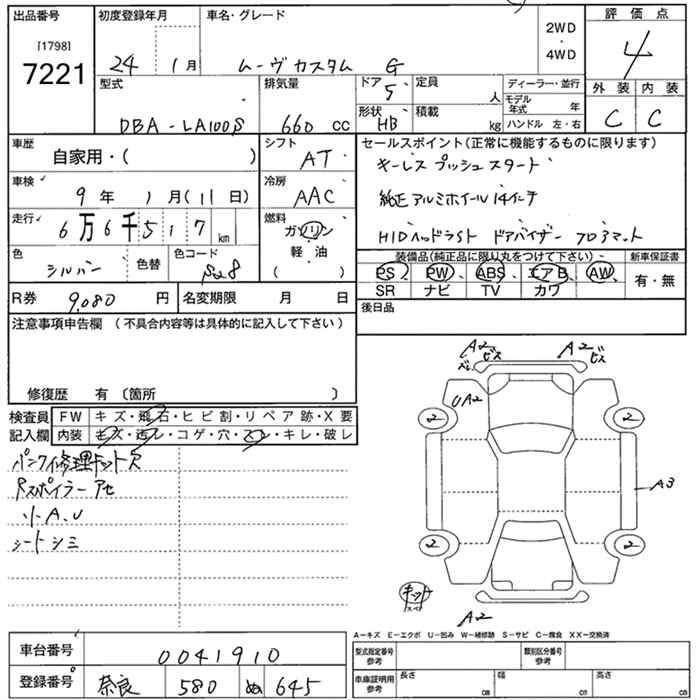 出品番号 初度登録年月 車名・グレード 2WD ・ 4WD 評価点
[1798]
7221 24 1月 ムーヴカスタム G 4
型式 排気量 ドア 5 定員 人 ディーラー・並行 外装 内装
形状 HB 積載 kg モデル年式 年
DBA-LA100S 660 CC ハンドル 左・右 C C
車歴 シフト セールスポイント(正常に機能するものに限ります)
自家用・( ) AT キーレスプッシュスタート
車検 9年 1月(11日) 冷房 AAC 純正アルミホイール14インチ
走行 6万6千517km 燃料 ガソリン HIDヘッドライト ドアバイザー フロアマット
軽・油
( )
色 シルバー 色替 色コード S28 装備品(純正品に限り丸をつけて下さい) 新車保証書
PS PW ABS エアB AW 有・無
R券 9,080円 名変期限 月 日 SR ナビ TV カワ
注意事項申告欄(不具合内容等は具体的に記入して下さい) 後日品
修復歴 有〔箇所 〕
A2 ビス A2 ビス
検査員 FW キズ・飛石・ヒビ割・リペア跡・X要
記入欄 内装 キズ・汚レ・コゲ・穴・スレ・キレ・破レ
UA2
2 2
パンク修理キット欠
Rスポイラーアセ
リ-A、U
シートシミ
A3
2 2
キット
A2
A-キズ E-エクボ U-凹み W-補修跡 S-サビ C-腐食 XX-交換済
車台番号 0041910 型式指定番号 参考 類別区分番号 参考
登録番号 奈良 580 ぬ 645 車庫証明用 参考 長さ 幅 高さ